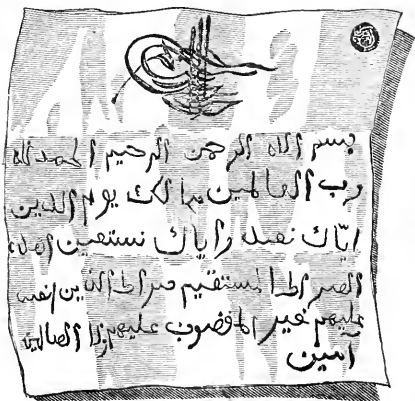 بسم الاه الرحمن الرحيم الحمد لله
رب العالمين مالك يوم الدين
ايّاك نعبد واياك نستعين اهدنا
الصراط المستقيم صراط الذين انعمت
عليهم غير المغضوب عليهم ولا الضالين
آمين